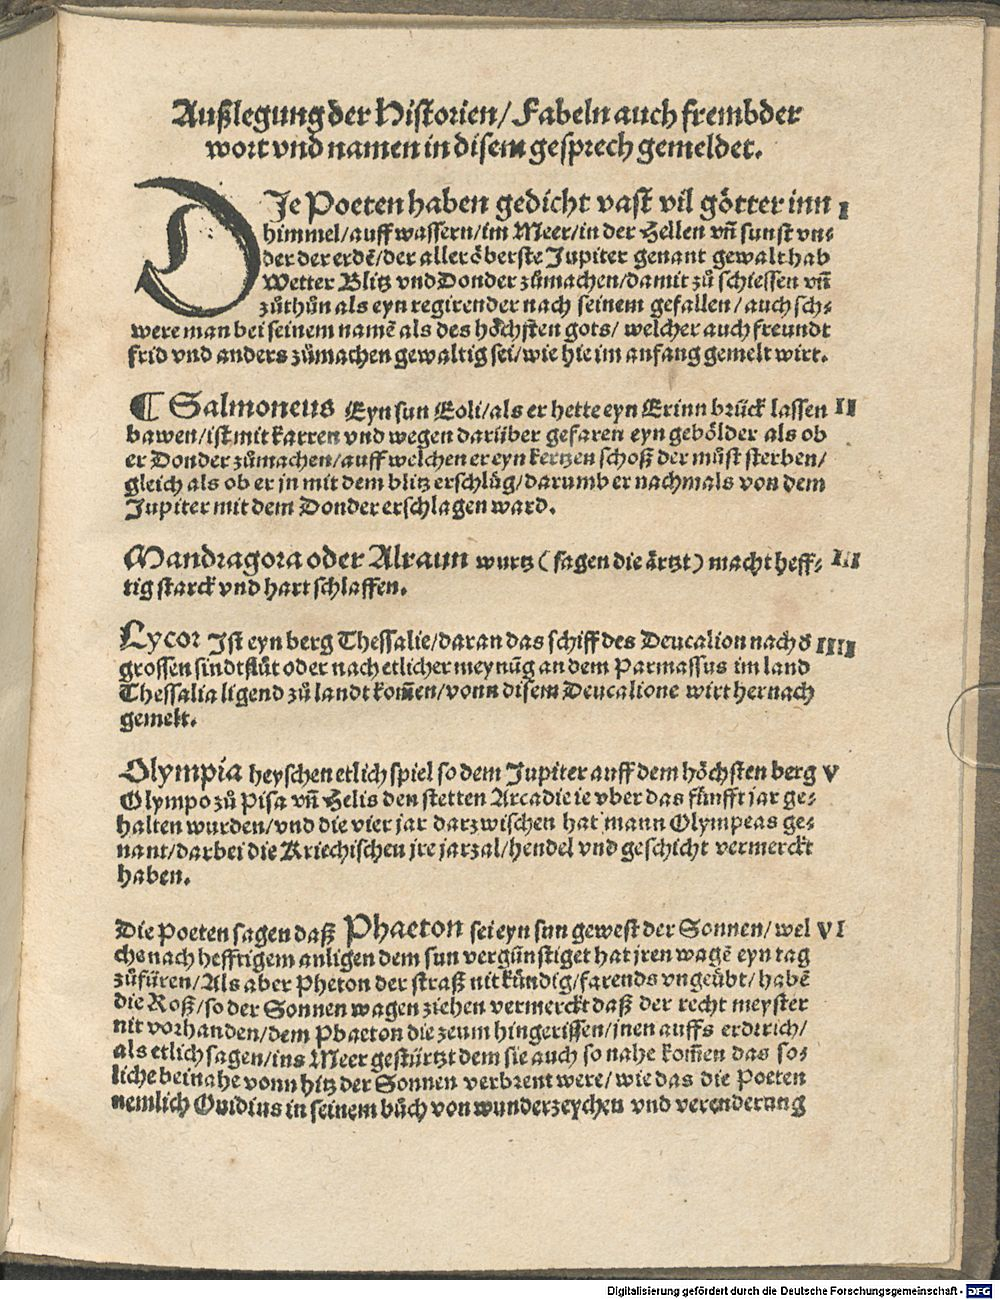 Außlegung der Historien/ Fabeln auch frembder
wort vnd namen in disem gesprech gemeldet.
DIe Poeten haben gedicht vast vil götter inn I
himmel/ auff wassern/ im Meer/ in der Hellen vñ sunst vn-
der der erdē/ der aller öberste Jupiter genant gewalt hab
Wetter Blitz vnd Donder zůmachen/ damit zů schiessen vñ
zůthůn als eyn regirender nach seinem gefallen/ auch sch-
were man bei seinem namē als des höchsten gots/ welcher auch freundt
frid vnd anders zůmachen gewaltig sei/ wie hie im anfang gemelt wirt.
¶ Salmoneus Eyn sun Eoli/ als er hette eyn Erinn brück lassen II
bawen/ ist mit karren vnd wegen darüber gefaren eyn gebölder als ob
er Donder zůmachen/ auff welchen er eyn kertzen schoß der můst sterben/
gleich als ob er jn mit dem blitz erschlůg/ darumb er nachmals von dem
Jupiter mit dem Donder erschlagen ward.
Mandragora oder Alraun wurtz ( sagen die ärtzt ) macht heff- III
tig starck vnd hart schlaffen.
Lycor Ist eyn berg Thessalie/ daran das schiff des Deucalion nach d̄ IIII
grossen sindtflůt oder nach etlicher meynūg an dem Parmassus im land
Thessalia ligend zů landt kom̄en/ vonn disem Deucalione wirt hernach
gemelt.
Olympia heyschen etlich spiel so dem Jupiter auff dem höchsten berg V
Olympo zů Pisa vñ Helis den stetten Arcadie ie vber das fünfft jar ge-
halten wurden/ vnd die vier jar darzwischen hat mann Olympeas ge-
nant/ darbei die Kriechischen jre jarzal/ hendel vnd geschicht vermerckt
haben.
Die Poeten sagen daß Phaeton sei eyn sun gewest der Sonnen/ wel VI
che nach hefftigem anligen dem sun vergünstiget hat jren wagē eyn tag
zůfüren/ Als aber Pheton der straß nit kündig/ farends vngeübt/ habē
die Roß/ so der Sonnen wagen ziehen vermerckt daß der recht meyster
nit vorhanden/ dem Phaeton die zeum hingerissen/ jnen auffs erdtrich/
als etlich sagen/ ins Meer gestürtzt dem sie auch so nahe kom̄en das so-
liche beinahe vonn hitz der Sonnen verbrent were/ wie das die Poeten
nemlich Ouidius in seinem bůch von wunderzeychen vnd verenderung
Digitalisierung gefördert durch die Deutsche Forschungsgemeinschaft - DFG